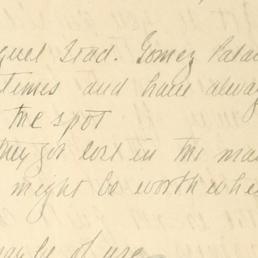 quel Trad. Gomez Palac
times and have alway
the spot
they got lost in the ma
might be worth whi
may be of use